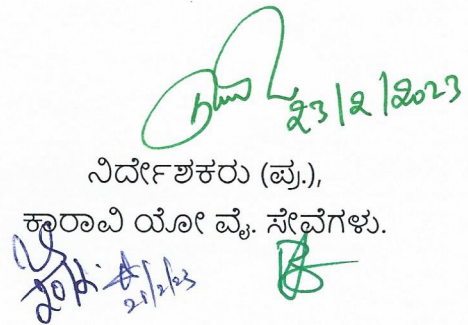 23/2/2023
ನಿರ್ದೇಶಕರು (ಪ್ರ.),
ಕಾರಾವಿ ಯೋ ವೈ. ಸೇವೆಗಳು.
21/2/23